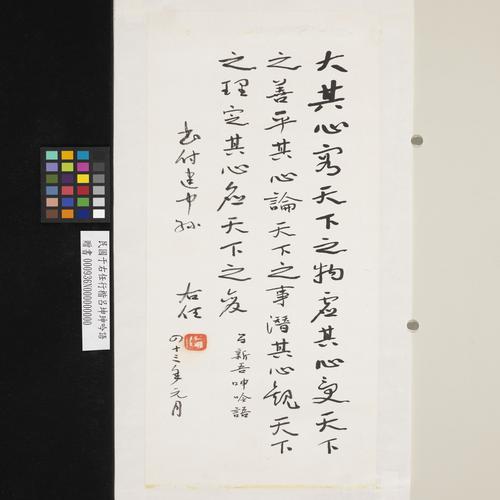 大其心容天下之物虛其心受天下
之善平其心論天下之事潛其心觀天下
之理定其心應天下之變
呂新吾呻吟語
書付建中孫
右任
四十三年元月
民國于右任行楷呂坤呻吟語
贈書000936X000000000